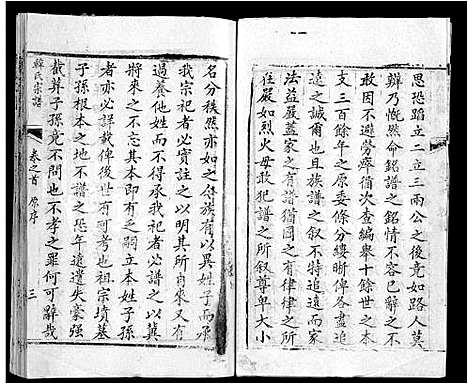 思恐蹈立二立三兩公之後竟如路人莫
辯乃慨然命銘譜之銘情不容已辭之不
敢因不避勞瘁循次查編舉十餘世之本
支三百餘年之原委條分縷晰俾各盡追
遠之誠爾也且族譜之後列條規者特家
法益嚴蓋家之有譜猶國之有律律之所
在嚴如烈火毋敢犯譜之所叙尊卑大小
名分秩然亦如之俗族有以異姓子而承
我宗祀者必實註之以明其所自來又有
過養他姓而不得承我祀者必譜之以冀
將來之不忘其本即有乏嗣立本姓子孫
者亦必詳載俾後世有攷也祖宗墳墓
子孫根本之地不譜之恐年遠遺失豪強
截葬子孫竟不問也不孝之罪何可辭哉
韓氏宗譜
卷之首 原序 三